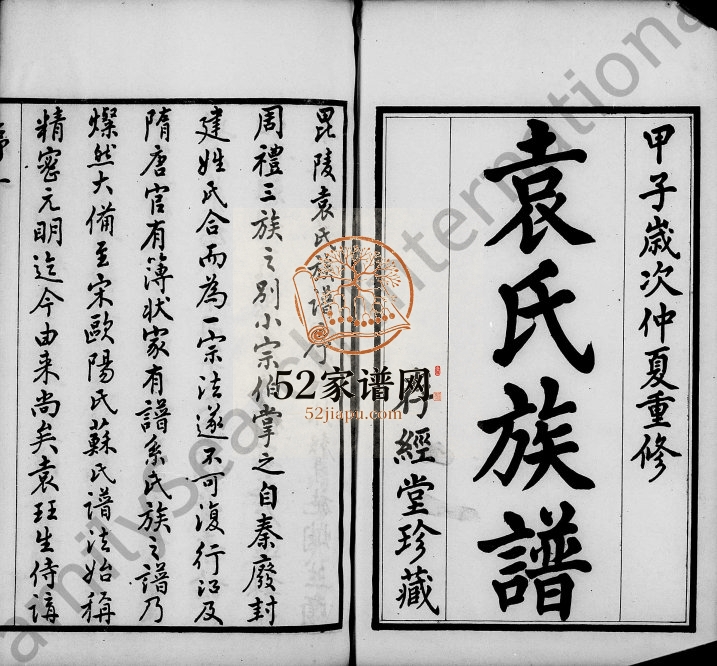 甲子歲次仲夏重修
袁氏族譜
經堂珍藏
毘陵袁氏族譜序
周禮三族之別小宗伯掌之自秦廢封
建姓氏合而為一宗法遂不可復行江及
隋唐官有簿狀家有譜系氏族之譜乃
燦然大備至宋歐陽氏蘇氏譜法始稱
精密元明迄今由来尚矣袁珏生侍講
52家谱网
52jiapu.com
FamilySearch International